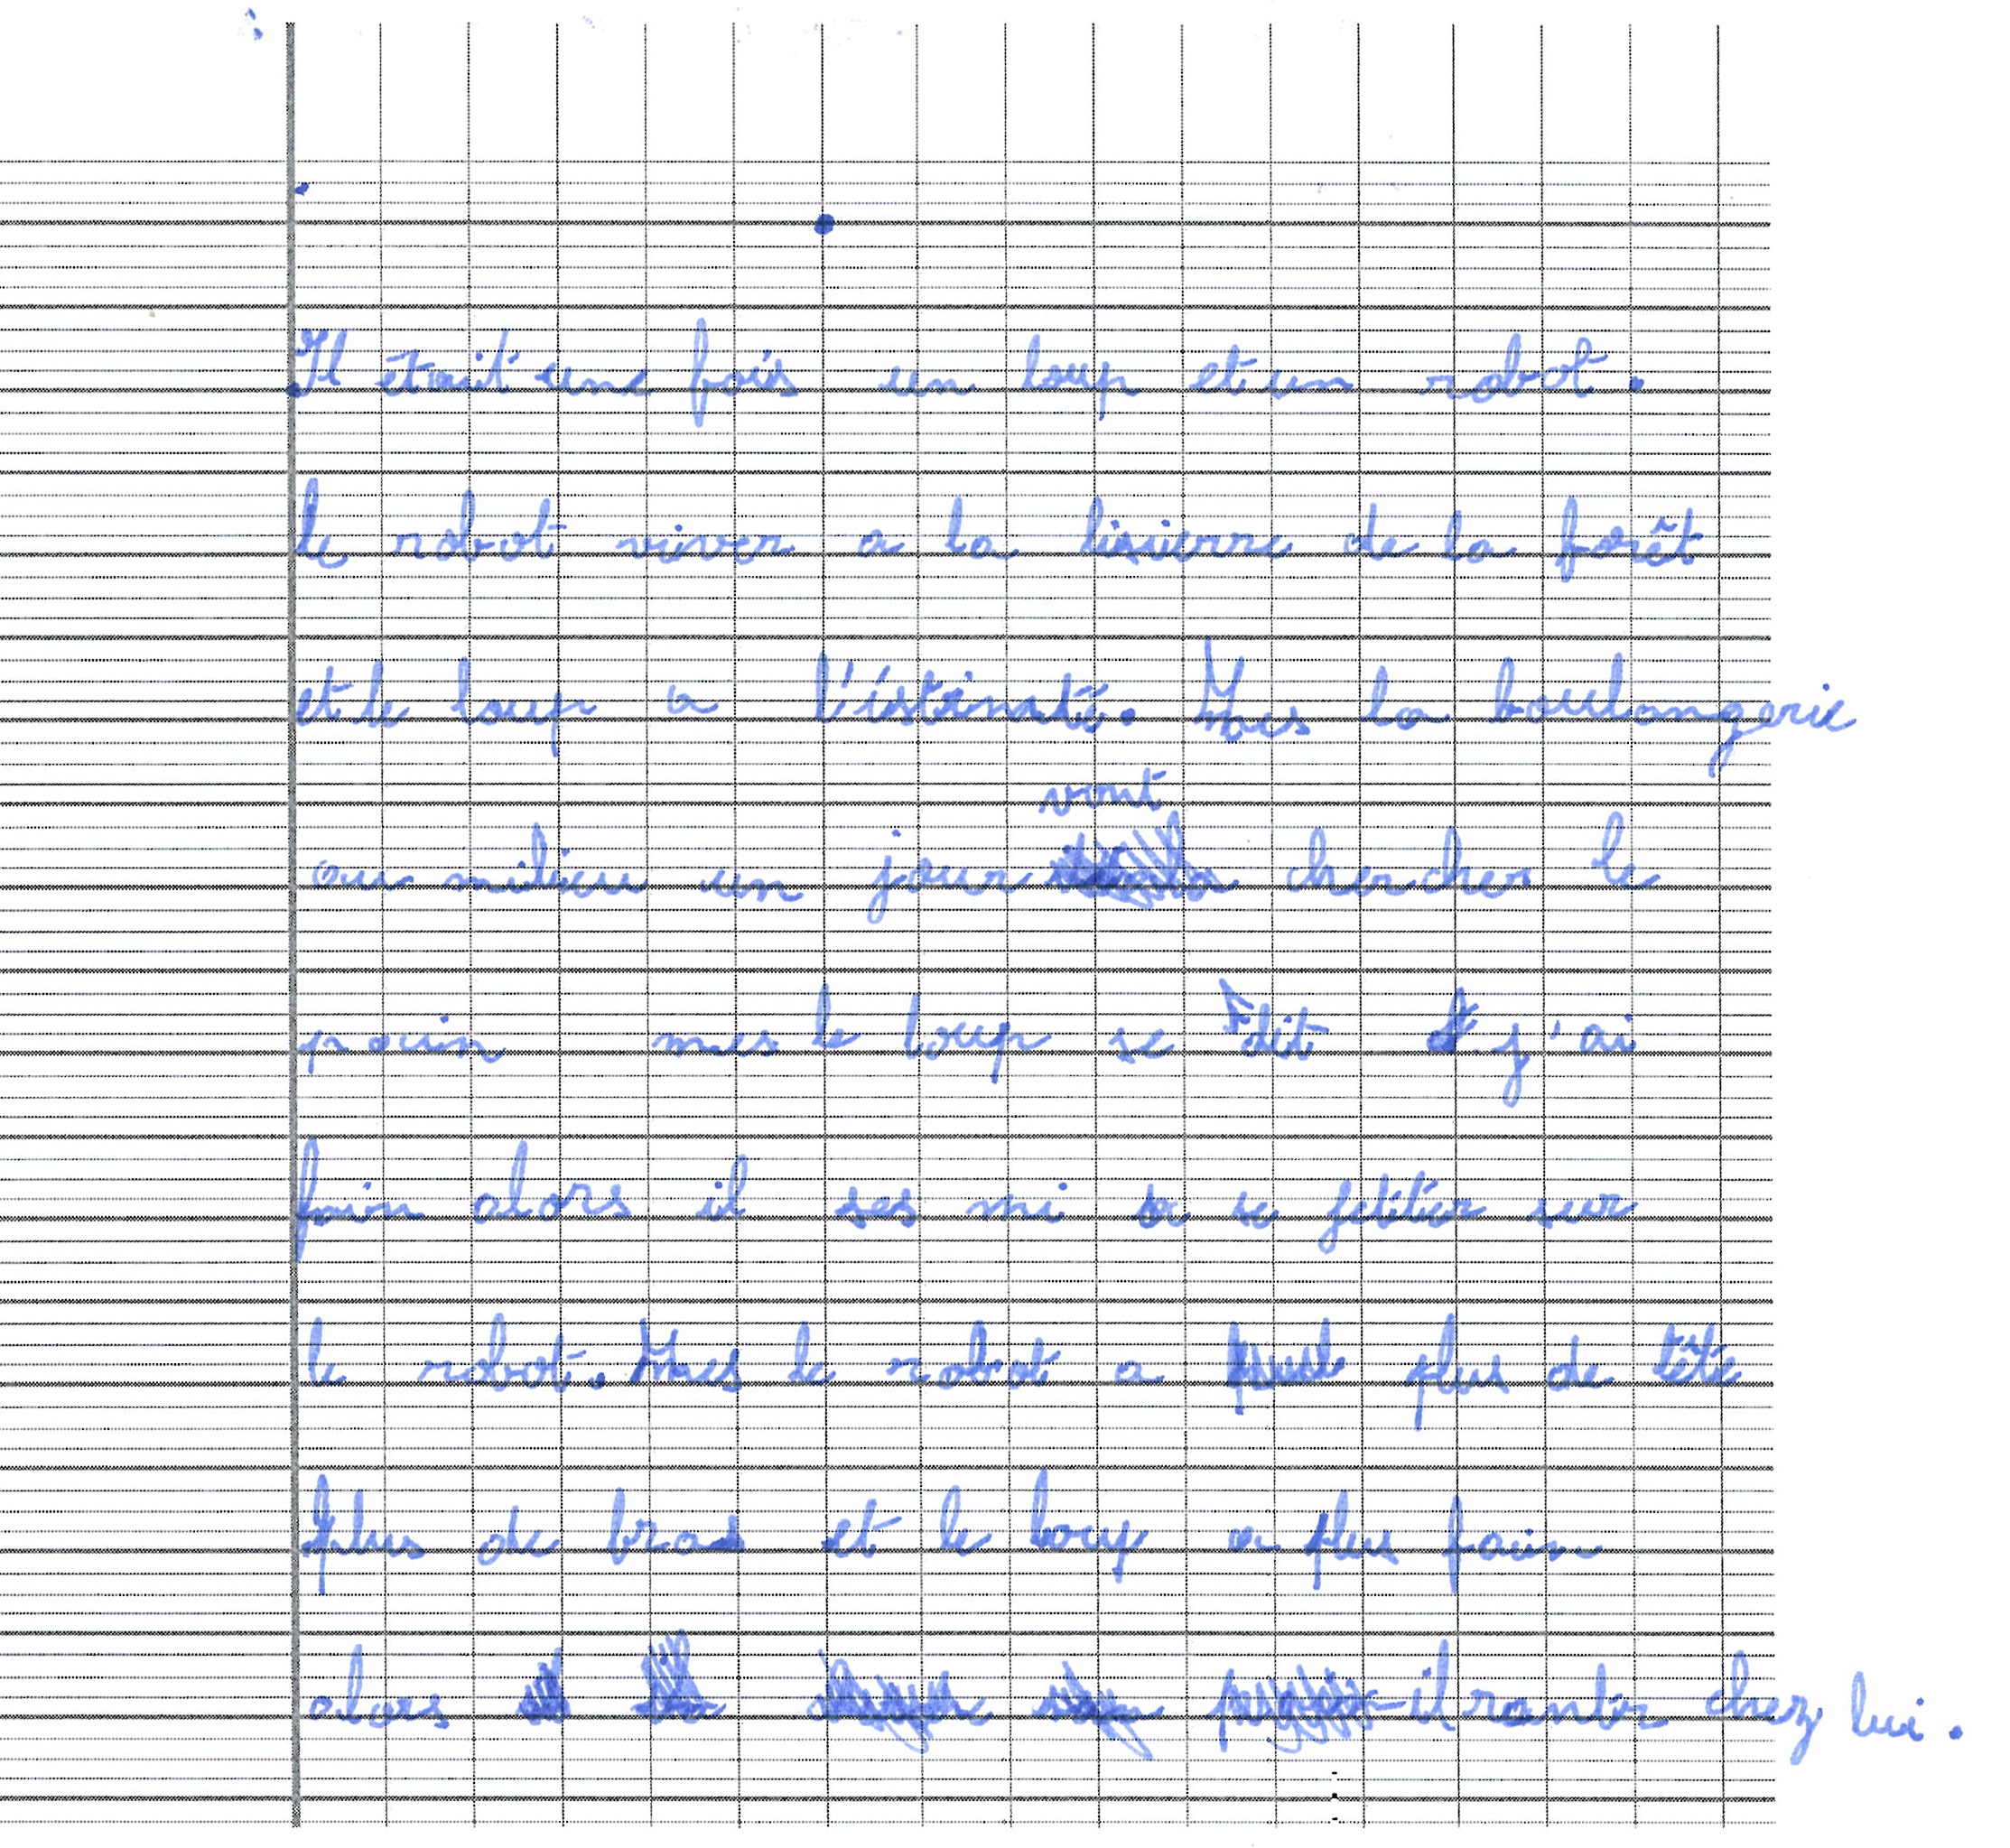 Il était une fois un loup et un robot.
le robot viver a la lisierre de la forêt
et le loup a l'éstrimité. Mes la boulangerie
vont
au milieu un jour chercher le
pain mes le loup se dit j'ai
fain alors il ses mi a se jetter sur
le robot. Mes le robot a plus de tête
plus de bras et le loup a plus fain
alors il rantr chez lui.